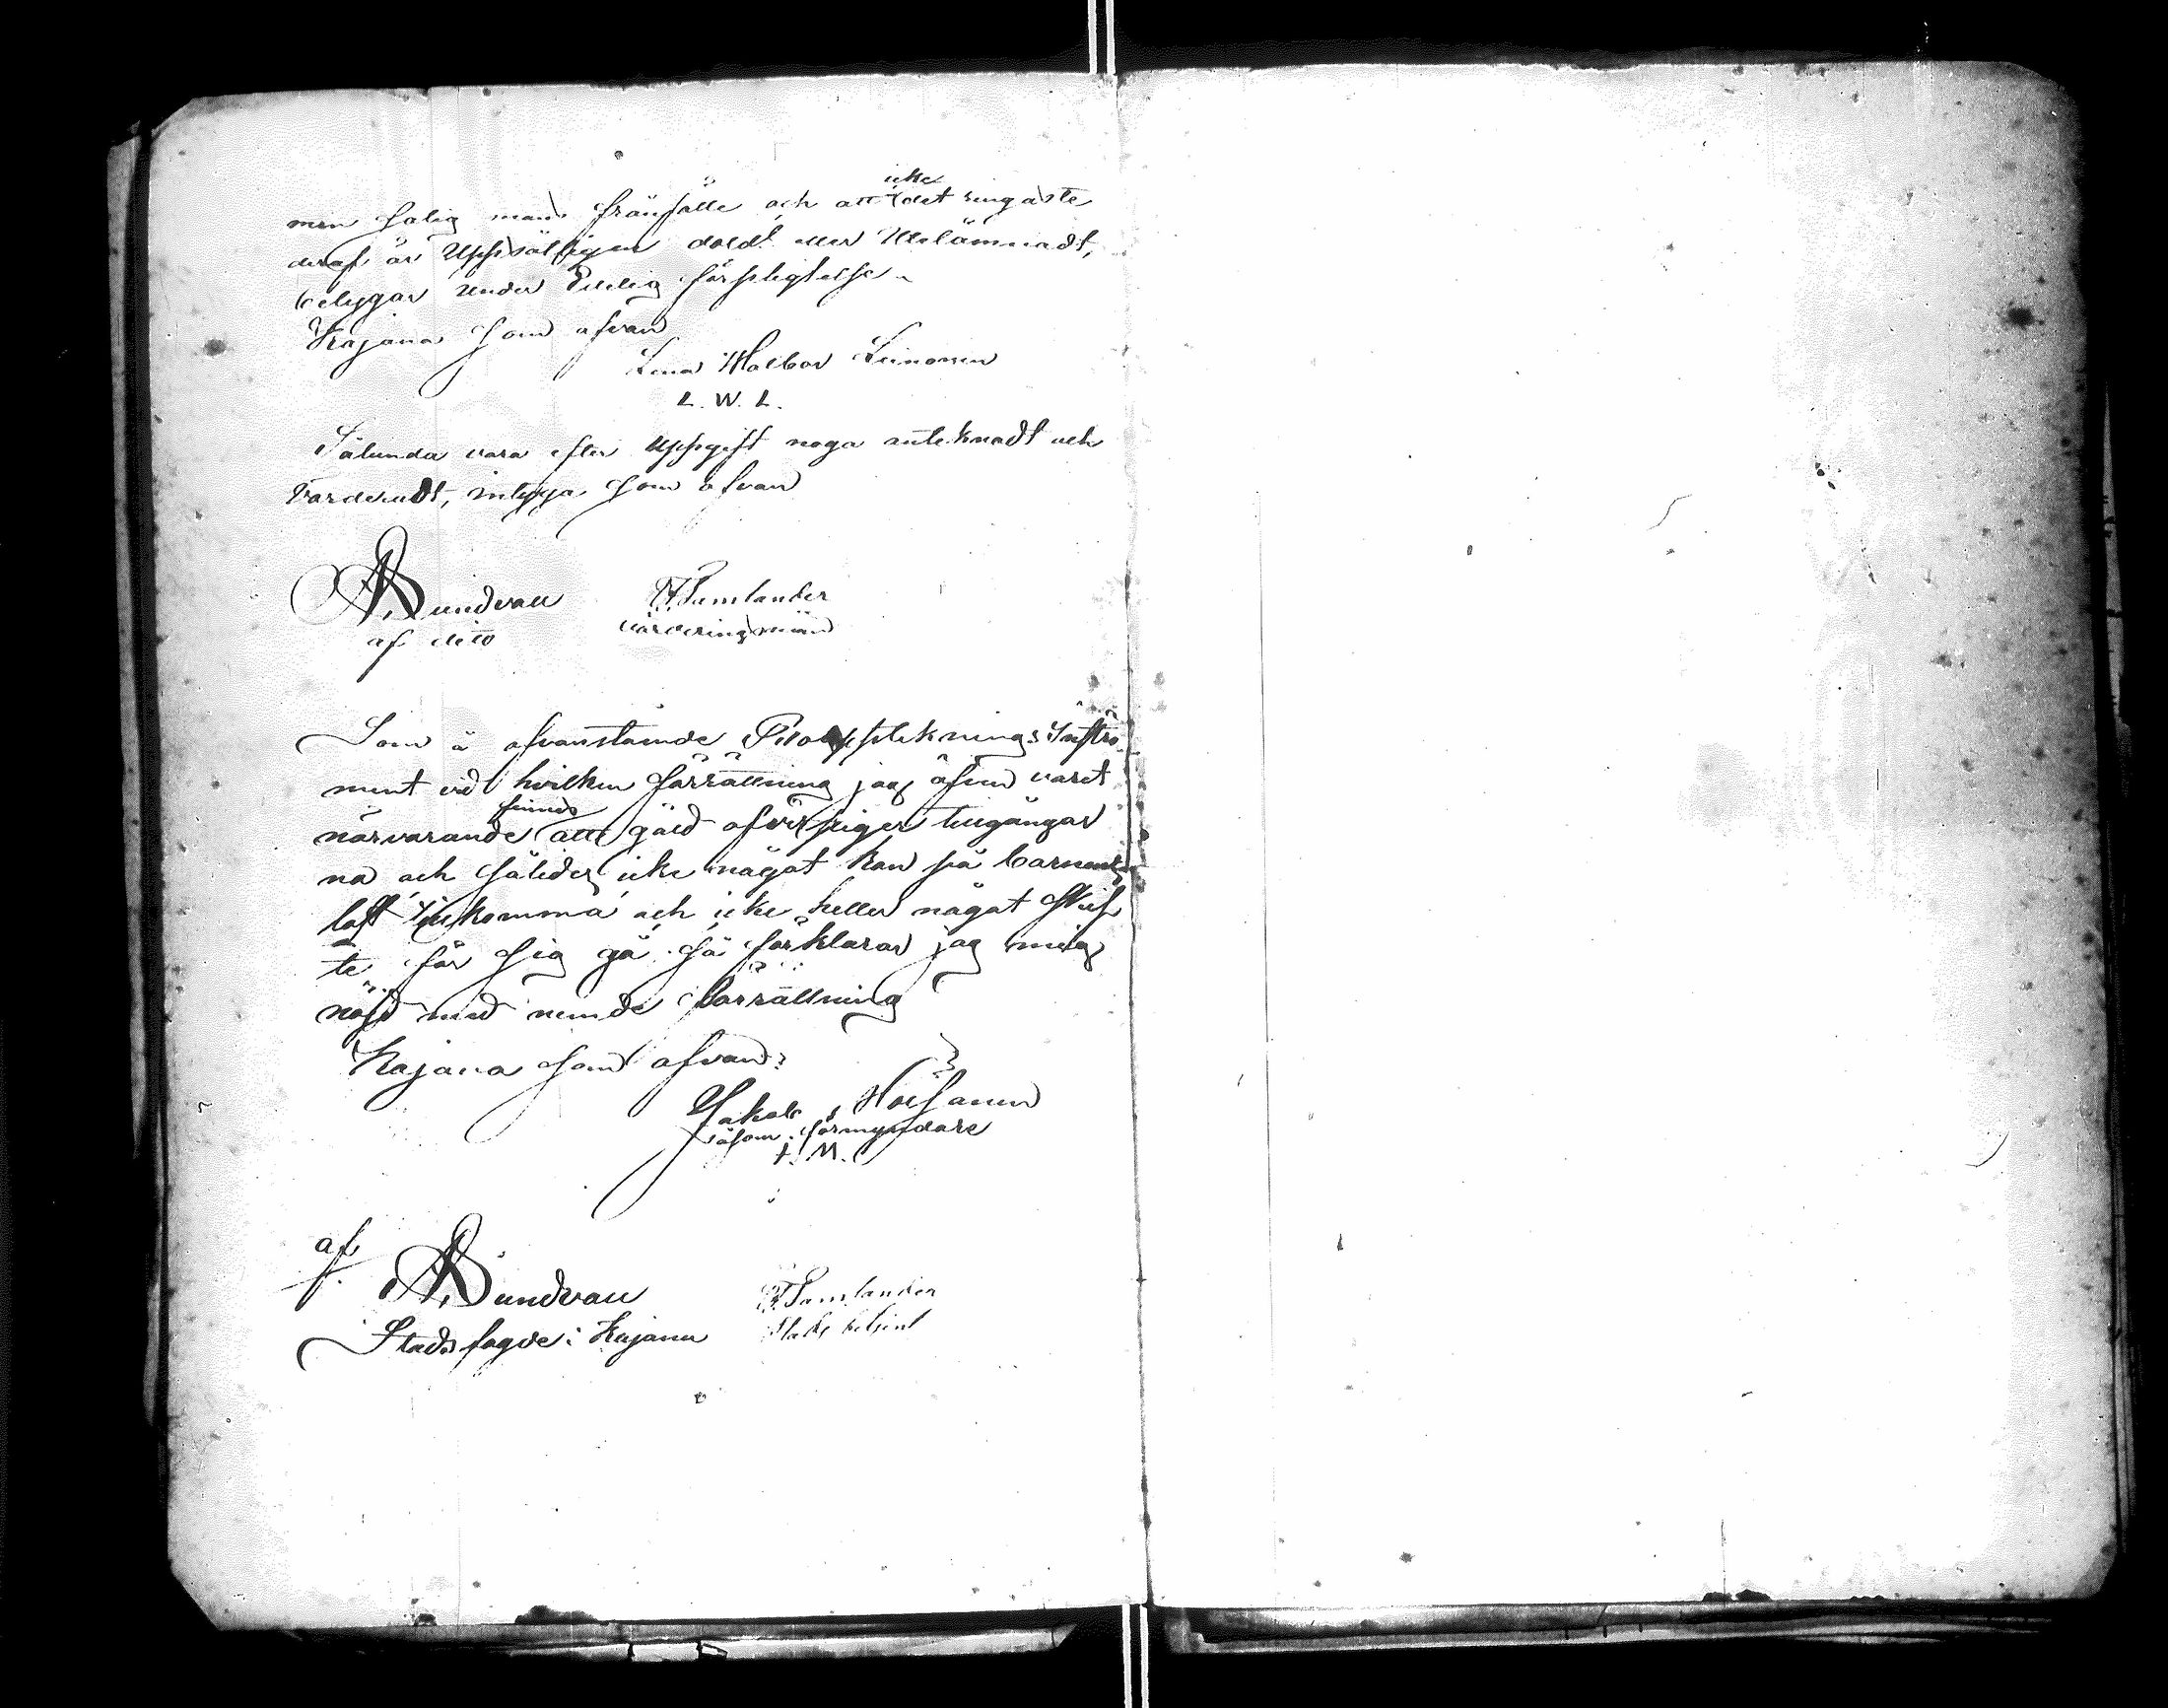 icke
min salig mans frånfälle och att det ringaste
deraf är Uppsåtligen doldt eller Utelämnadt,
betygar under Edelig förpligtelse.
Kajana som ofvan
Lena Walbor Leinonen
L. W. L.
Sålunda vara efter Uppgift noga antecknadt och
Värderadt, intyga som ofvan
A Sundvall
Tamlander
af dito
värderingsmän
Som å ofvanstående Bouppteknings Instru
ment vid hvilken förrättning jag äfven varit
finnes
närvarande att gäld öfverstiger tillgångar
na och således icke något kan på barnens
lott tillkomma och icke heller något skif
te för sig gå så förklarar jag mig
nöjd med nemde förrättning
Kajana som ofvan
Jakob Moisanen
såsom förmyndare
I. M.
af
A Sundvall
Tamlander
Stadsfogde i Kajana
Stads betjent